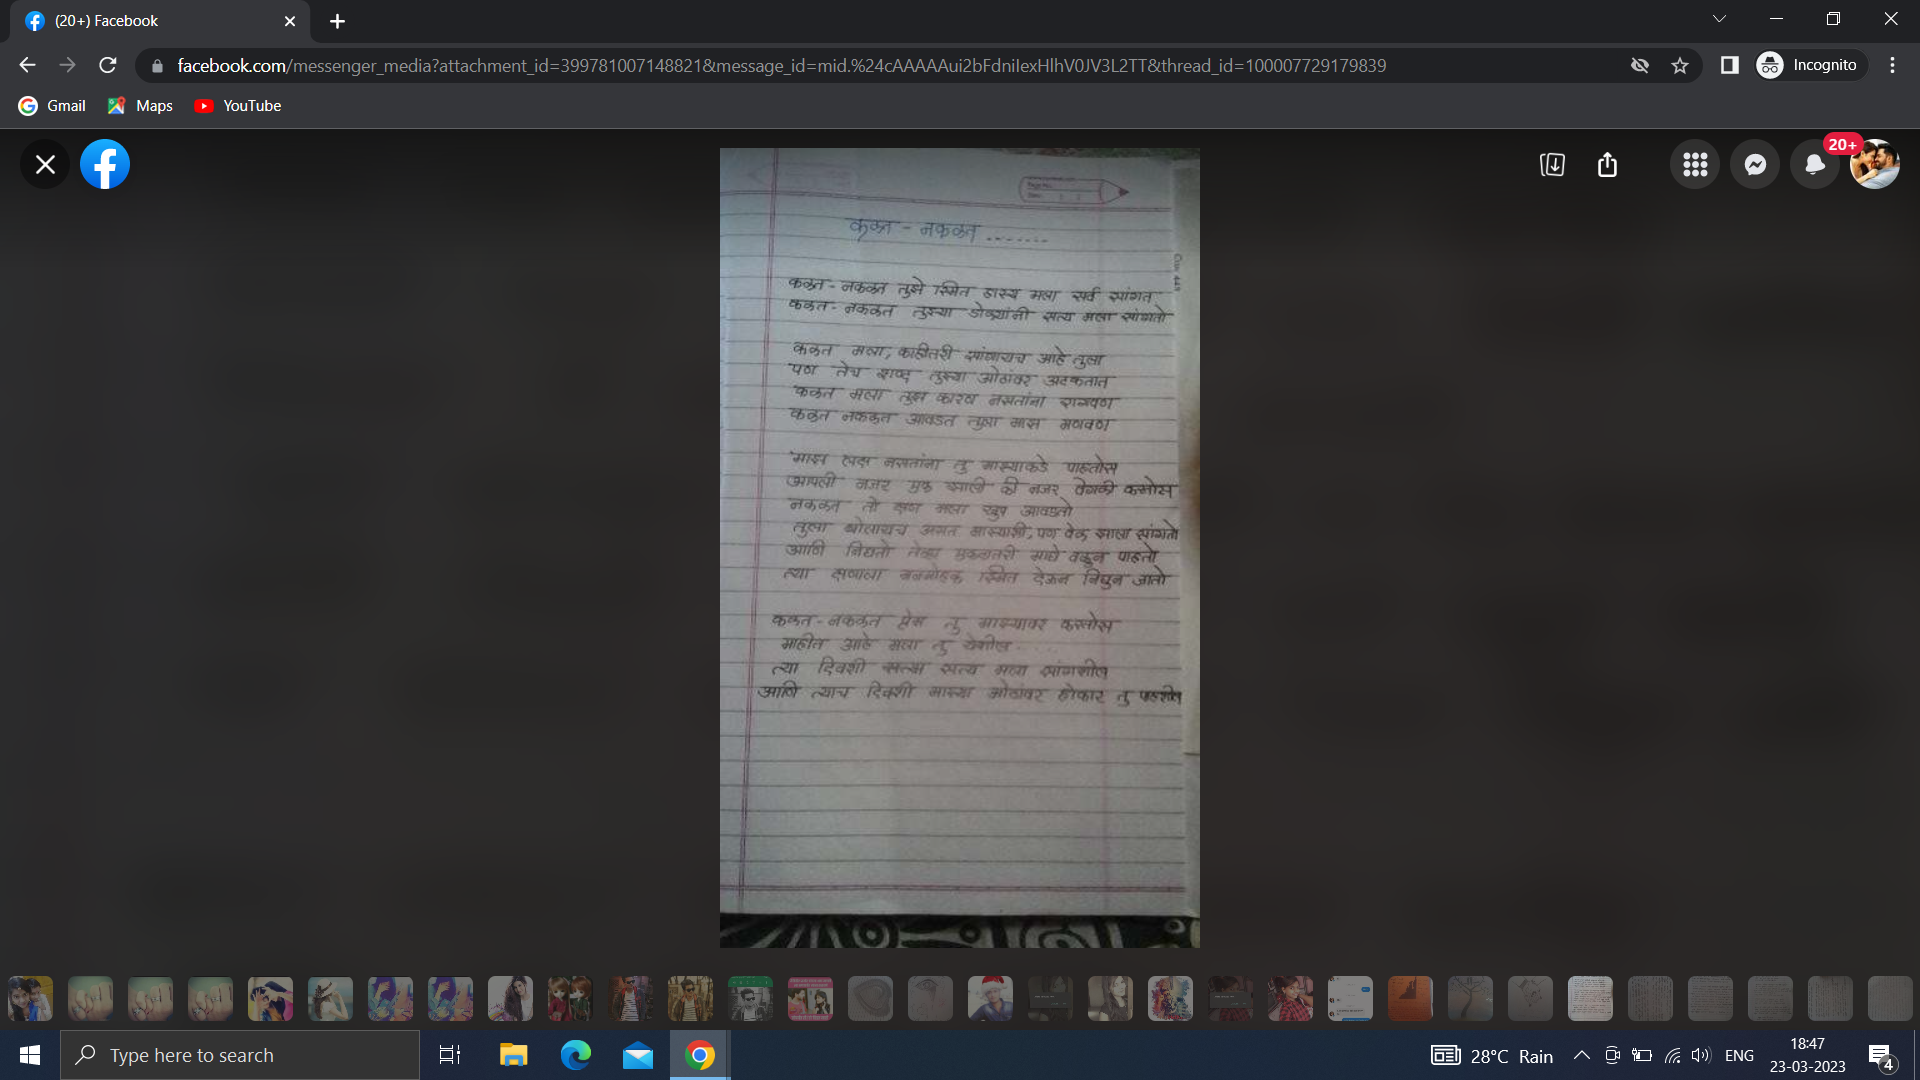 (20+) Facebook
facebook.com/messenger_media?attachment_id=399781007148821&message_id=mid.%24cAAAAAui2bFdniIexHlhV0JV3L2TT&thread_id=100007729179839
Incognito
Gmail Maps YouTube
20+
कळत - नकळत .......
कळत - नकळत तुझे स्मित हास्य मला सर्व सांगत
कळत - नकळत तुझ्या डोळ्यांनी सत्य मला सांगतो
कळत मला, काहीतरी सांगायच आहे तुला
पण तेच शब्द तुझ्या ओठांवर अटकतात
कळत मला तुझ कारण नसतांना रागवण
कळत नकळत आवडत तुला मास मनवण
माझ लक्ष नसतांना तु माझ्याकडे पाहतोस
आपली नजर एक झाली की नजर वेगळी करतोस
नकळत तो क्षण मला खुप आवडतो
तुला बोलायच असत माझ्याशी, पण वेळ झाला सांगतो
आणि निघतो तेव्हा एकदातरी मागे वळून पाहतो
त्या क्षणाला मनमोहक स्मित देऊन निघुन जातो
कळत - नकळत प्रेम तु माझ्यावर करतोस
माहीत आहे मला तु येशील . . . . .
त्या दिवशी सत्य मला सांगशील
आणि त्याच दिवशी माझ्या ओठांवर होकार तु पाहशील
Type here to search
28°C Rain
ENG
18:47
23-03-2023
4